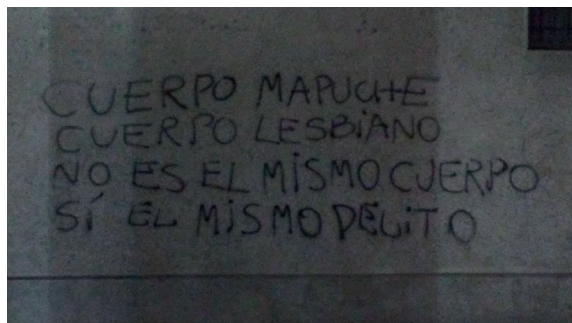 CUERPO MAPUCHE
CUERPO LESBiANO
NO ES EL MiSMO CUERPO
SÍ EL MiSMO DELiTO